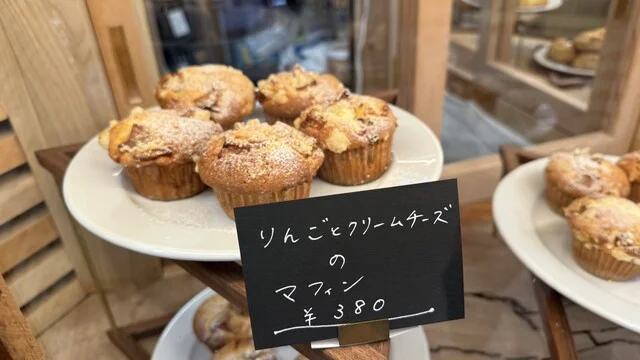 りんごとクリームチーズ
の
マフィン
¥380